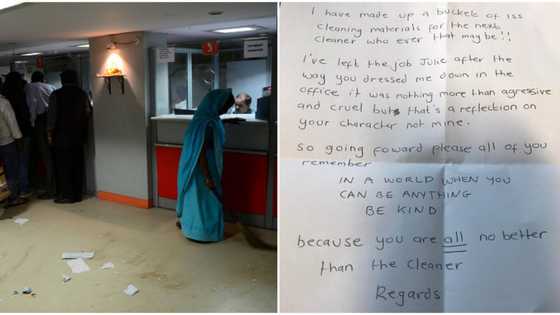 3
I have made up a buckets of iss
cleaning materials for the next
cleaner who ever that may be!!
I've left the job Julie after the
way you dressed me down in the
office it was nothing more than aggressive
and cruel but that's a reflection on
your character not mine.
So going foward please all of you
remember
IN A WORLD WHEN YOU
CAN BE ANYTHING
BE KIND
because you are all no better
than the cleaner
Regards